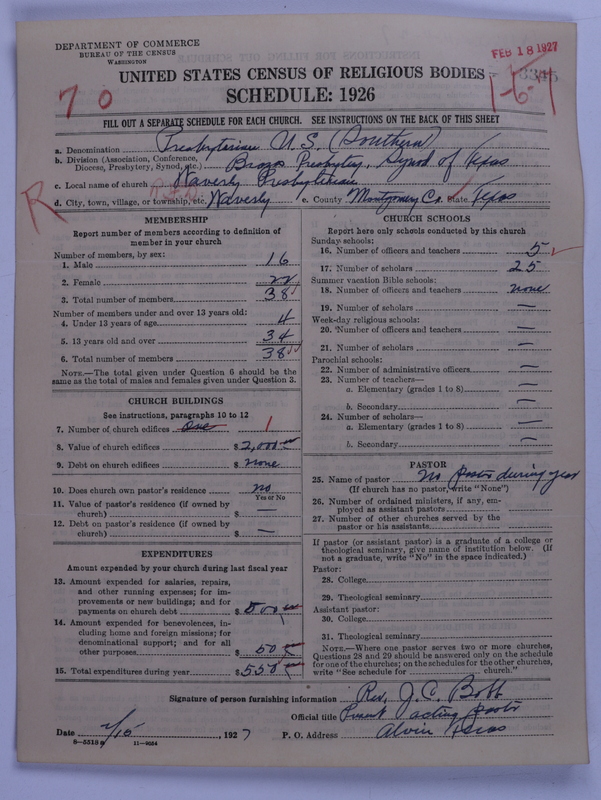 DEPARTMENT OF COMMERCE
BUREAU OF THE CENSUS
WASHINGTON
FEB 18 1927
UNITED STATES CENSUS OF RELIGIOUS BODIES
SCHEDULE: 1926
70
FILL OUT A SEPARATE SCHEDULE FOR EACH CHURCH. SEE INSTRUCTIONS ON THE BACK OF THIS SHEET
a. Denomination Presbyterian U.S. (Southern)
b. Division (Association, Conference, Diocese, Presbytery, Synod, etc.) Brazos Presbytery, Synod of Texas
c. Local name of church Waverly Presbyterian
R
d. City, town, village, or township, etc. Waverly e. County Montgomery Co. State Texas
MEMBERSHIP
Report number of members according to definition of
member in your church
Number of members, by sex:
1. Male 16
2. Female 22
3. Total number of members 38
Number of members under and over 13 years old:
4. Under 13 years of age 4
5. 13 years old and over 34
6. Total number of members 38
NOTE.—The total given under Question 6 should be the
same as the total of males and females given under Question 3.
CHURCH BUILDINGS
See instructions, paragraphs 10 to 12
7. Number of church edifices One 1
8. Value of church edifices $ 2,000
9. Debt on church edifices $ none
10. Does church own pastor's residence no
Yes or No
11. Value of pastor's residence (if owned by
church) $ —
12. Debt on pastor's residence (if owned by
church) $ —
EXPENDITURES
Amount expended by your church during last fiscal year
13. Amount expended for salaries, repairs,
and other running expenses; for im-
provements or new buildings; and for
payments on church debt $ 500
14. Amount expended for benevolences, in-
cluding home and foreign missions; for
denominational support; and for all
other purposes $ 50
15. Total expenditures during year $ 550
CHURCH SCHOOLS
Report here only schools conducted by this church
Sunday schools:
16. Number of officers and teachers 5
17. Number of scholars 25
Summer vacation Bible schools:
18. Number of officers and teachers none
19. Number of scholars —
Week-day religious schools:
20. Number of officers and teachers —
21. Number of scholars —
Parochial schools:
22. Number of administrative officers —
23. Number of teachers—
a. Elementary (grades 1 to 8) —
b. Secondary —
24. Number of scholars—
a. Elementary (grades 1 to 8) —
b. Secondary —
PASTOR
25. Name of pastor no pastor during year
(If church has no pastor, write "None")
26. Number of ordained ministers, if any, em-
ployed as assistant pastors
27. Number of other churches served by the
pastor or his assistants
If pastor (or assistant pastor) is a graduate of a college or
theological seminary, give name of institution below. (If
not a graduate, write "No" in the space indicated.)
Pastor:
28. College
29. Theological seminary
Assistant pastor:
30. College
31. Theological seminary
NOTE.—Where one pastor serves two or more churches,
Questions 28 and 29 should be answered only on the schedule
for one of the churches; on the schedules for the other churches,
write "See schedule for church."
Signature of person furnishing information Rev. J. C.
Official title Present acting pastor
Date 2/15 1927 P. O. Address Alvin Texas
8—5518a 11—9054